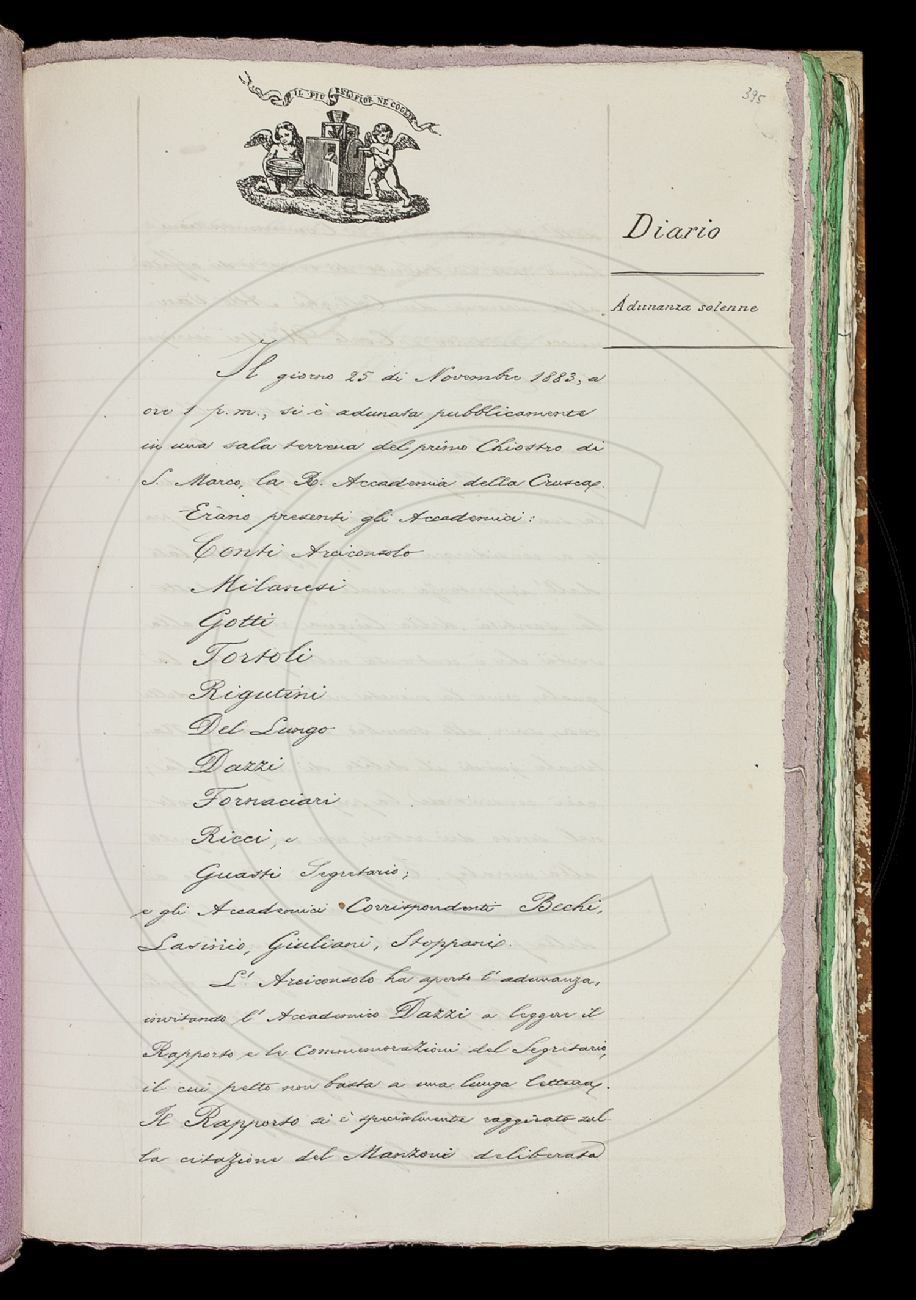 IL PIÙ BEL FIOR NE COGLIE
395
Diario
Adunanza solenne
Il giorno 25 di Novembre 1883, a
ore 1 p.m., si è adunata pubblicamente
in una sala terrena del primo Chiostro di
S. Marco, la R. Accademia della Crusca.
Erano presenti gli Accademici:
Conti Arciconsolo
Milanesi
Gotti
Tortoli
Rigutini
Del Lungo
Dazzi
Fornaciari
Ricci, e
Guasti Segretario;
e gli Accademici Corrispondenti Bechi,
Lasinio, Giuliani, Stoppani.
L' Arciconsolo ha aperto l' adunanza,
invitando l' Accademico Dazzi a leggere il
Rapporto e le Commemorazioni del Segretario,
il cui petto non basta a una lunga lettura.
Il Rapporto si è specialmente raggirato sul
la citazione del Manzoni deliberata